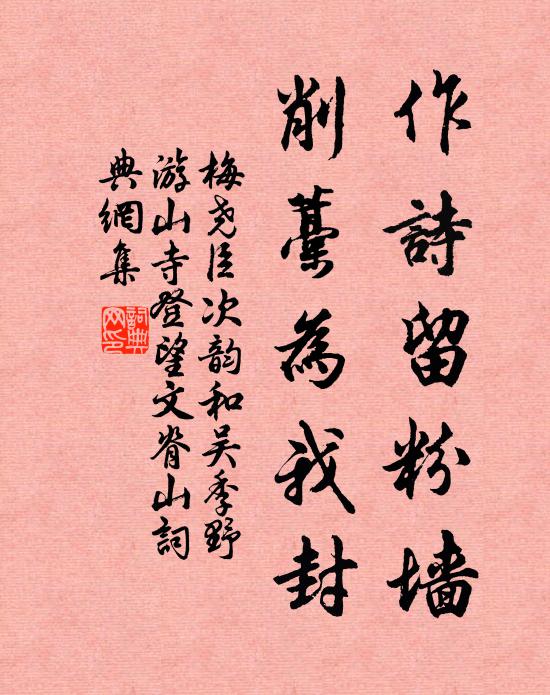 作詩留粉墻
削藁為我封
梅尧臣次韵和吴季野
游山寺登望文脊山詞
典網集
詞典網印